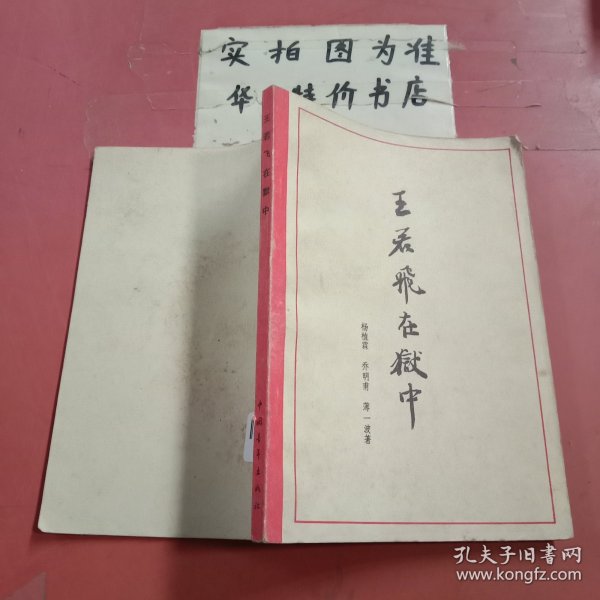 实拍图为准
华 特价书店
王若飞在獄中
王若飛在獄中
杨植霖 乔明甫 薄一波著
中国青年出版社
孔夫子旧书网
www.kongfz.com